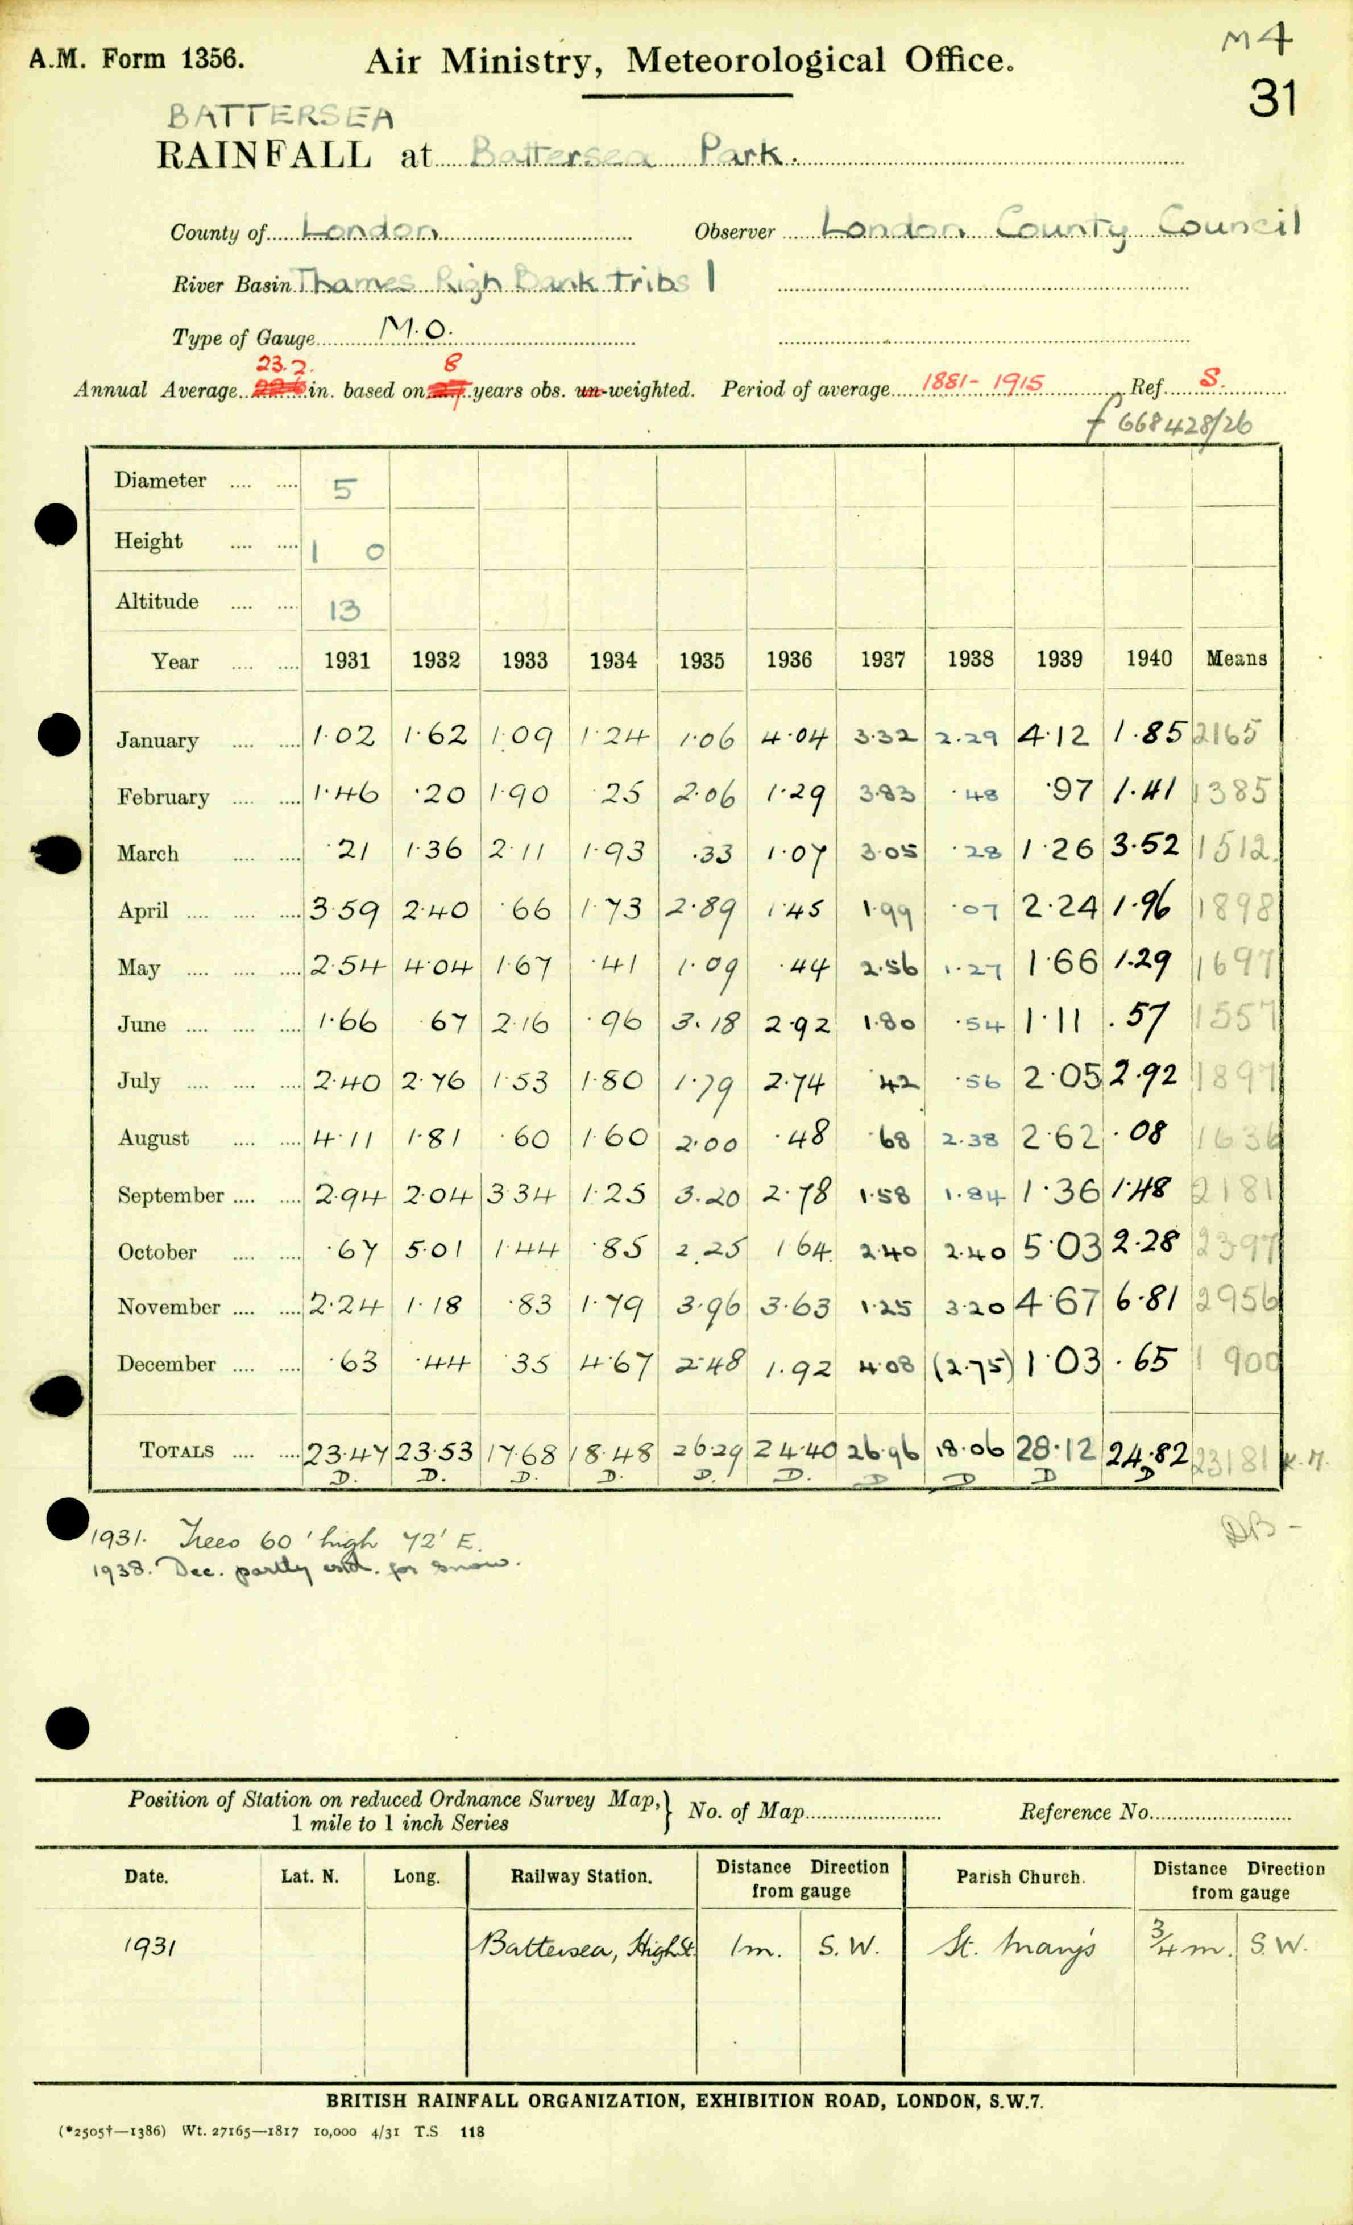 M4
A.M. Form 1356. Air Ministry, Meteorological Office.
31
BATTERSEA
RAINFALL at Battersea Park.
County of London Observer London County Council
River Basin Thames Righ Bank Tribs 1
Type of Gauge M.O.
23.2. 8
Annual Average in. based on years obs. un-weighted. Period of average 1881-1915 Ref S.
f 668428/26
Diameter .... .... 5
Height .... .... 1 0
Altitude .... .... 13
Year .... .... 1931 1932 1933 1934 1935 1936 1937 1938 1939 1940 Means
January .... .... 1.02 1.62 1.09 1.24 1.06 4.04 3.32 2.29 4.12 1.85 2165
February .... .... 1.46 .20 1.90 25 2.06 1.29 3.83 .48 .97 1.41 1385
March .... .... .21 1.36 2.11 1.93 .33 1.07 3.05 .28 1.26 3.52 1512
April .... .... .... 3.59 2.40 .66 1.73 2.89 1.45 1.99 .07 2.24 1.96 1898
May .... .... .... 2.54 4.04 1.67 .41 1.09 .44 2.56 1.27 1.66 1.29 1697
June .... .... .... 1.66 67 2.16 .96 3.18 2.92 1.80 .54 1.11 .57 1557
July .... .... .... 2.40 2.76 1.53 1.80 1.79 2.74 .42 .56 2.05 2.92 1897
August .... .... 4.11 1.81 .60 1.60 2.00 .48 .68 2.38 2.62 .08 1636
September .... .... 2.94 2.04 3.34 1.25 3.20 2.78 1.58 1.84 1.36 1.48 2181
October .... .... .67 5.01 1.44 .85 2.25 1.64 2.40 2.40 5.03 2.28 2397
November .... .... 2.24 1.18 .83 1.79 3.96 3.63 1.25 3.20 4.67 6.81 2956
December .... .... .63 .44 35 4.67 2.48 1.92 4.08 (2.75) 1.03 .65 1900
TOTALS .... .... 23.47 23.53 17.68 18.48 26.29 24.40 26.96 18.06 28.12 24.82 23181
D. D. D. D. D. D. D D D D
1931. Trees 60' high 72' E.
1938. Dec. partly estd. for snow.
Position of Station on reduced Ordnance Survey Map, } No. of Map Reference No.
1 mile to 1 inch Series
Date. Lat. N. Long. Railway Station. Distance Direction from gauge Parish Church. Distance Direction from gauge
1931 Battersea, High St. 1m. S.W. St. Mary's 3/4 m. S.W.
BRITISH RAINFALL ORGANIZATION, EXHIBITION ROAD, LONDON, S.W.7.
(*2505†—1386) Wt. 27165—1817 10,000 4/31 T.S 118